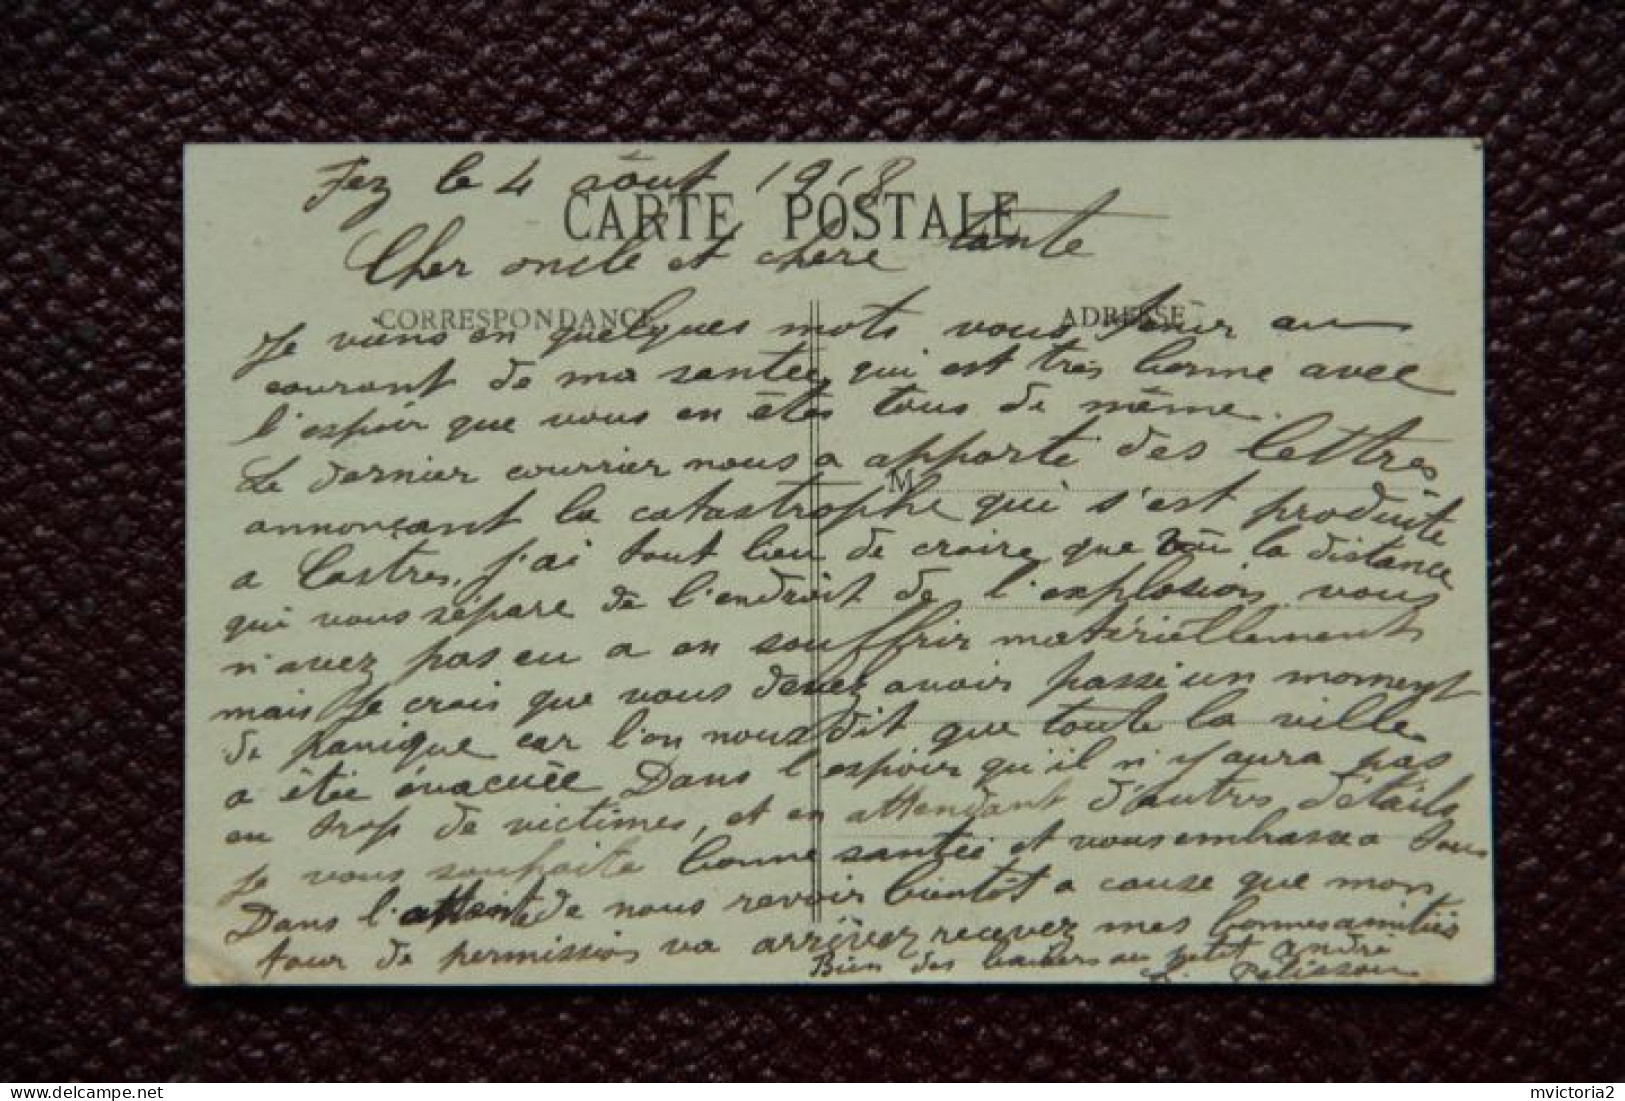 Fez le 4 août 1918
CARTE POSTALE
Cher oncle et chère tante
CORRESPONDANCE
ADRESSE
Je viens en quelques mots vous tenir au
courant de ma santée, qui est très bonne avec
l'espoir que vous en êtes tous de même.
Le dernier courrier nous a apporté des lettres
M
annonçant la catastrophe qui s'est produite
a Castres, j'ai tout lieu de croire que vu la distance
qui vous sépare de l'endroit de l'explosion vous
n'avez pas eu a en souffrir matériellement
mais je crois que vous devez avoir passé un moment
de panique car l'on nous dit que toute la ville
a étée évacuée Dans l'espoir qu'il n'y aura pas
eu trop de victimes, et en attendant d'autres détails
je vous souhaite bonne santée et vous embrasse a tous
Dans l'attente de nous revoir bientôt a cause que mon
tour de permission va arrêver recevez mes bonnes amitiés
Bien des baisers au petit André
Pelisson
mvictoria2